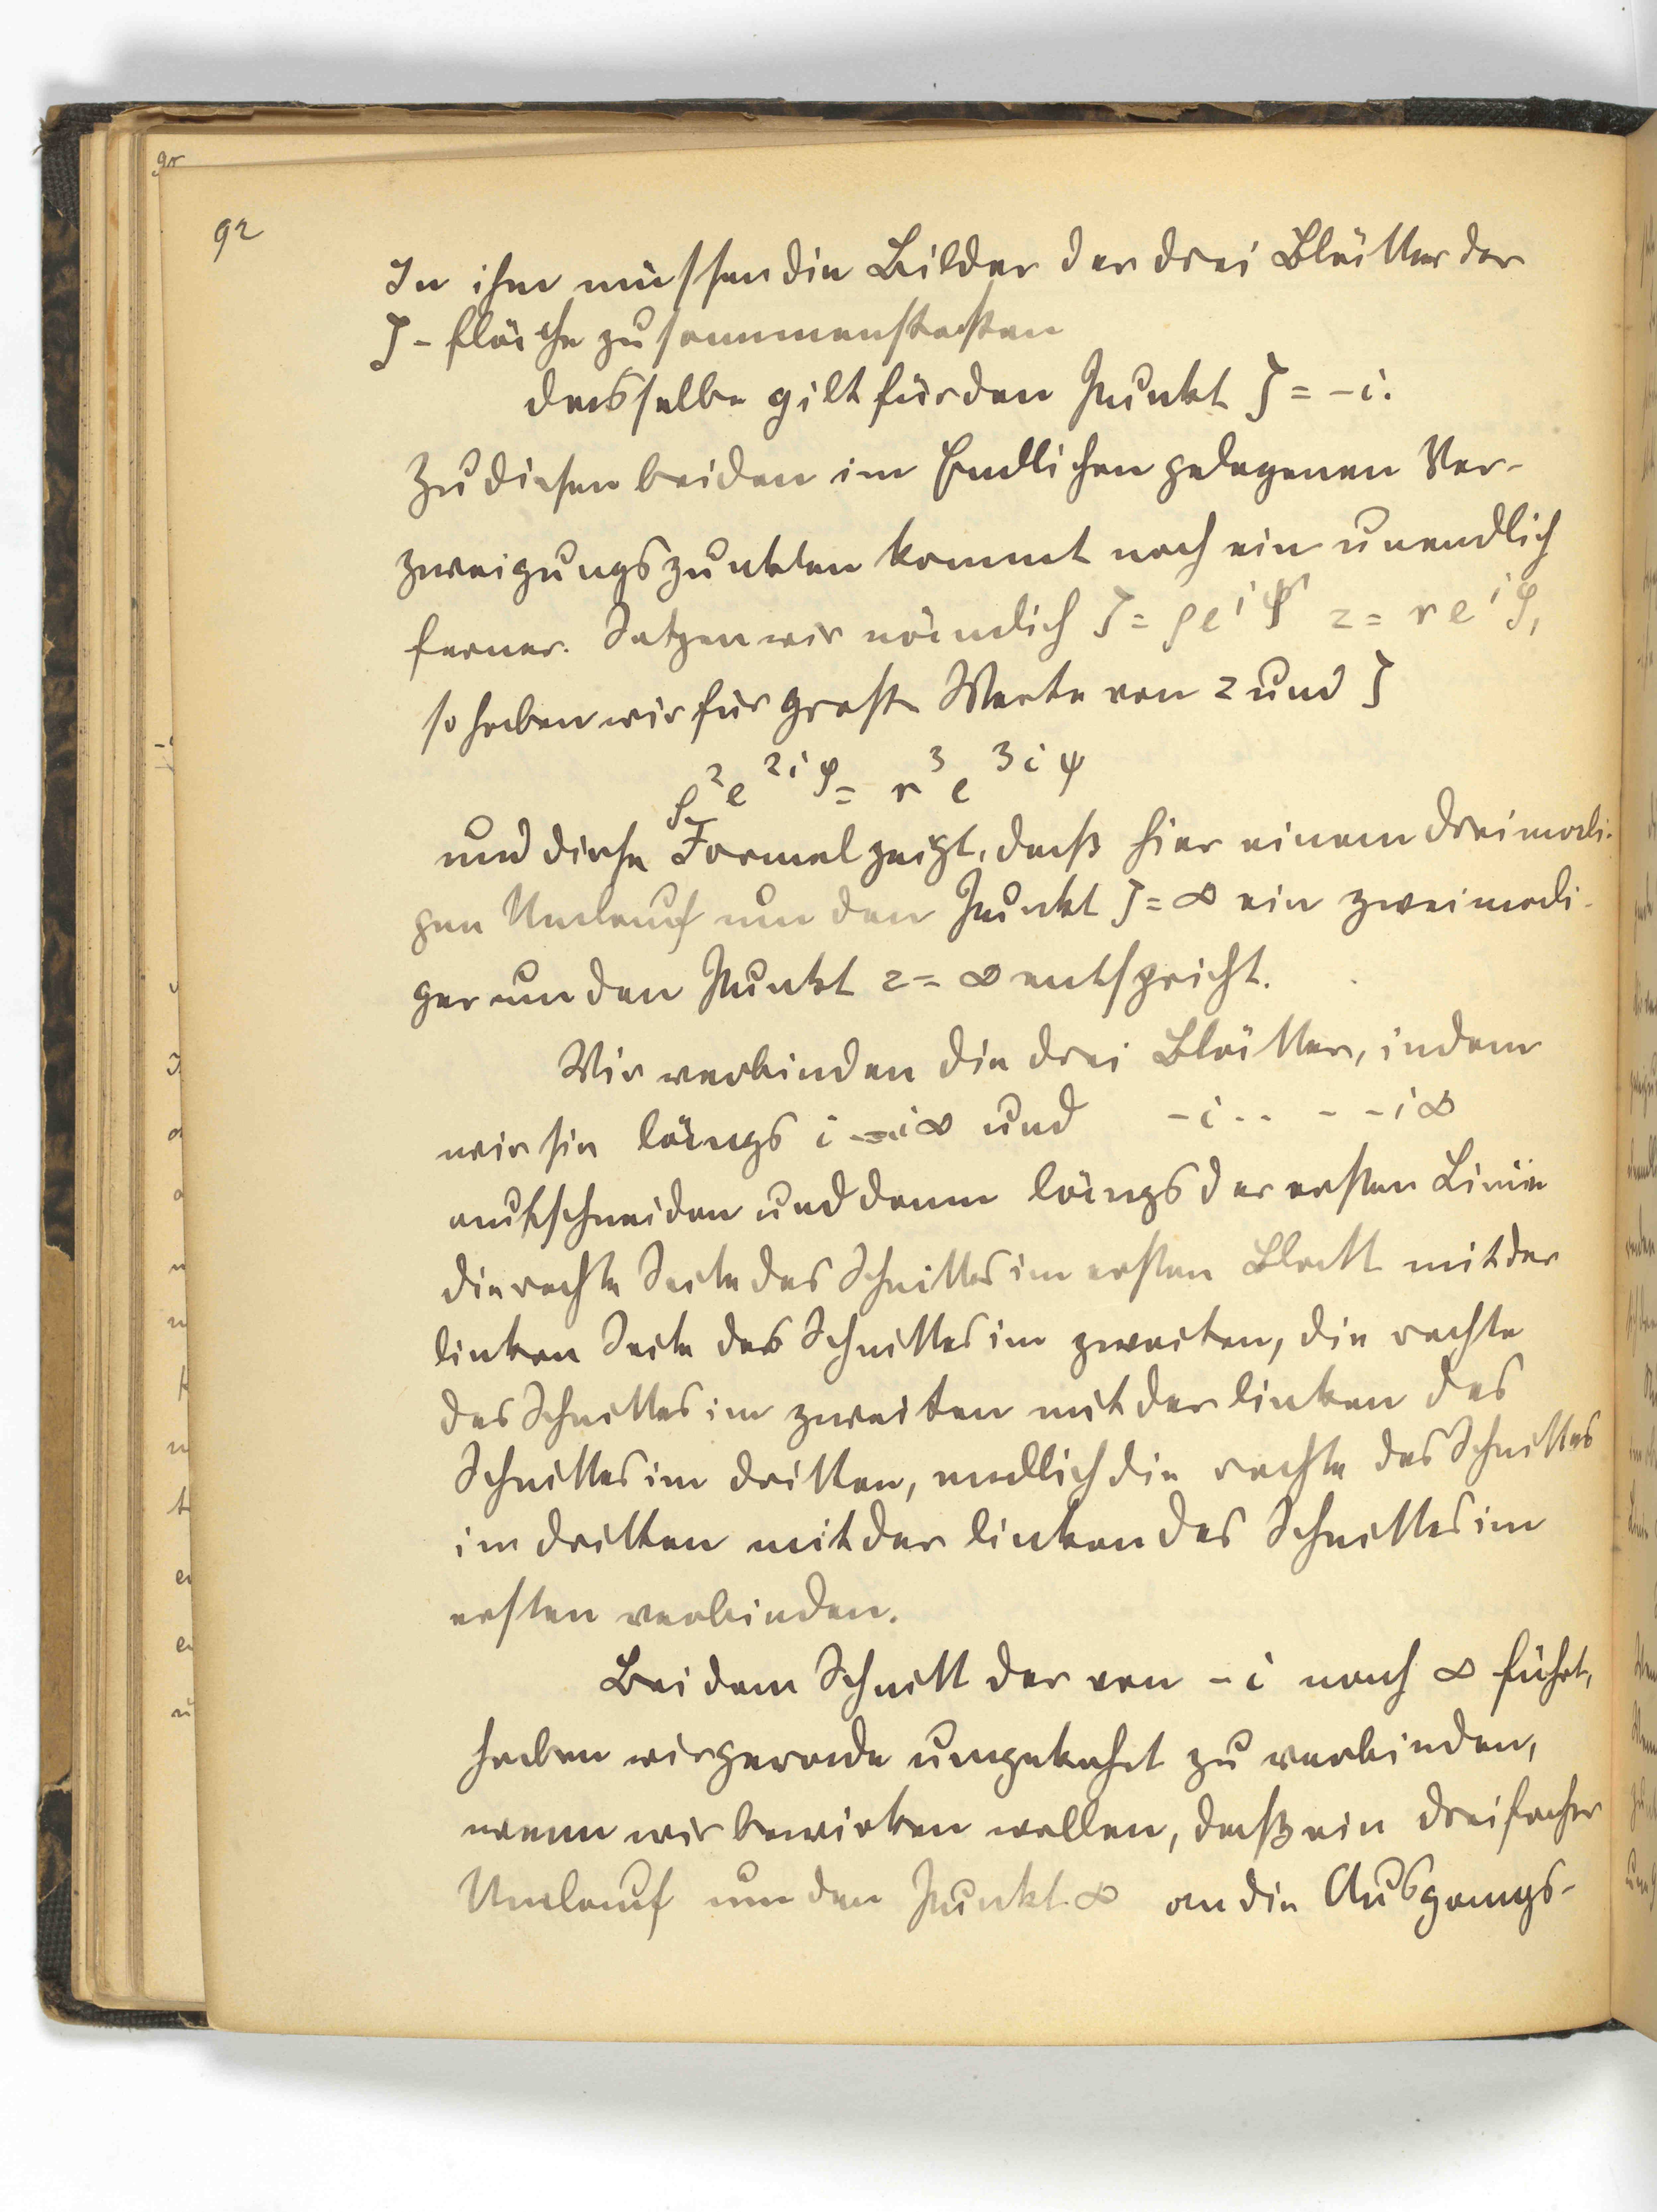 92
In ihm müssen die Bilder der drei Blätter der
ζ-fläche zusammenstoßen
dasselbe gilt für den Punkt ζ = -i.
Zu diesen beiden im Endlichen gelegenen Ver-
zweigungspunkten kommt noch ein unendlich
ferner. Setzen wir nämlich ζ = ρe^{iφ} z = re^{iψ},
so haben wir für große Werte von z und ζ
ρ²e^{2iφ} = r³e^{3iψ}
und diese Formel zeigt, daß hier einem dreimali-
gen Umlauf um den Punkt ζ = ∞ ein zweimali-
ger um den Punkt z = ∞ entspricht.
Wir verbinden die drei Blätter, indem
wir sie längs i -- i∞ und -i .. - -i∞
aufschneiden und dann längs der ersten Linie
die rechte Seite des Schnittes im ersten Blatt mit der
linken Seite des Schnittes im zweiten, die rechte
des Schnittes im zweiten mit der linken des
Schnittes im dritten, endlich die rechte des Schnittes
im dritten mit der linken des Schnittes im
ersten verbinden.
Bei dem Schnitt der von -i nach ∞ führt,
haben wir gerade umgekehrt zu verbinden,
wenn wir bewirken wollen, daß ein dreifacher
Umlauf um den Punkt ∞ an die Ausgangs-